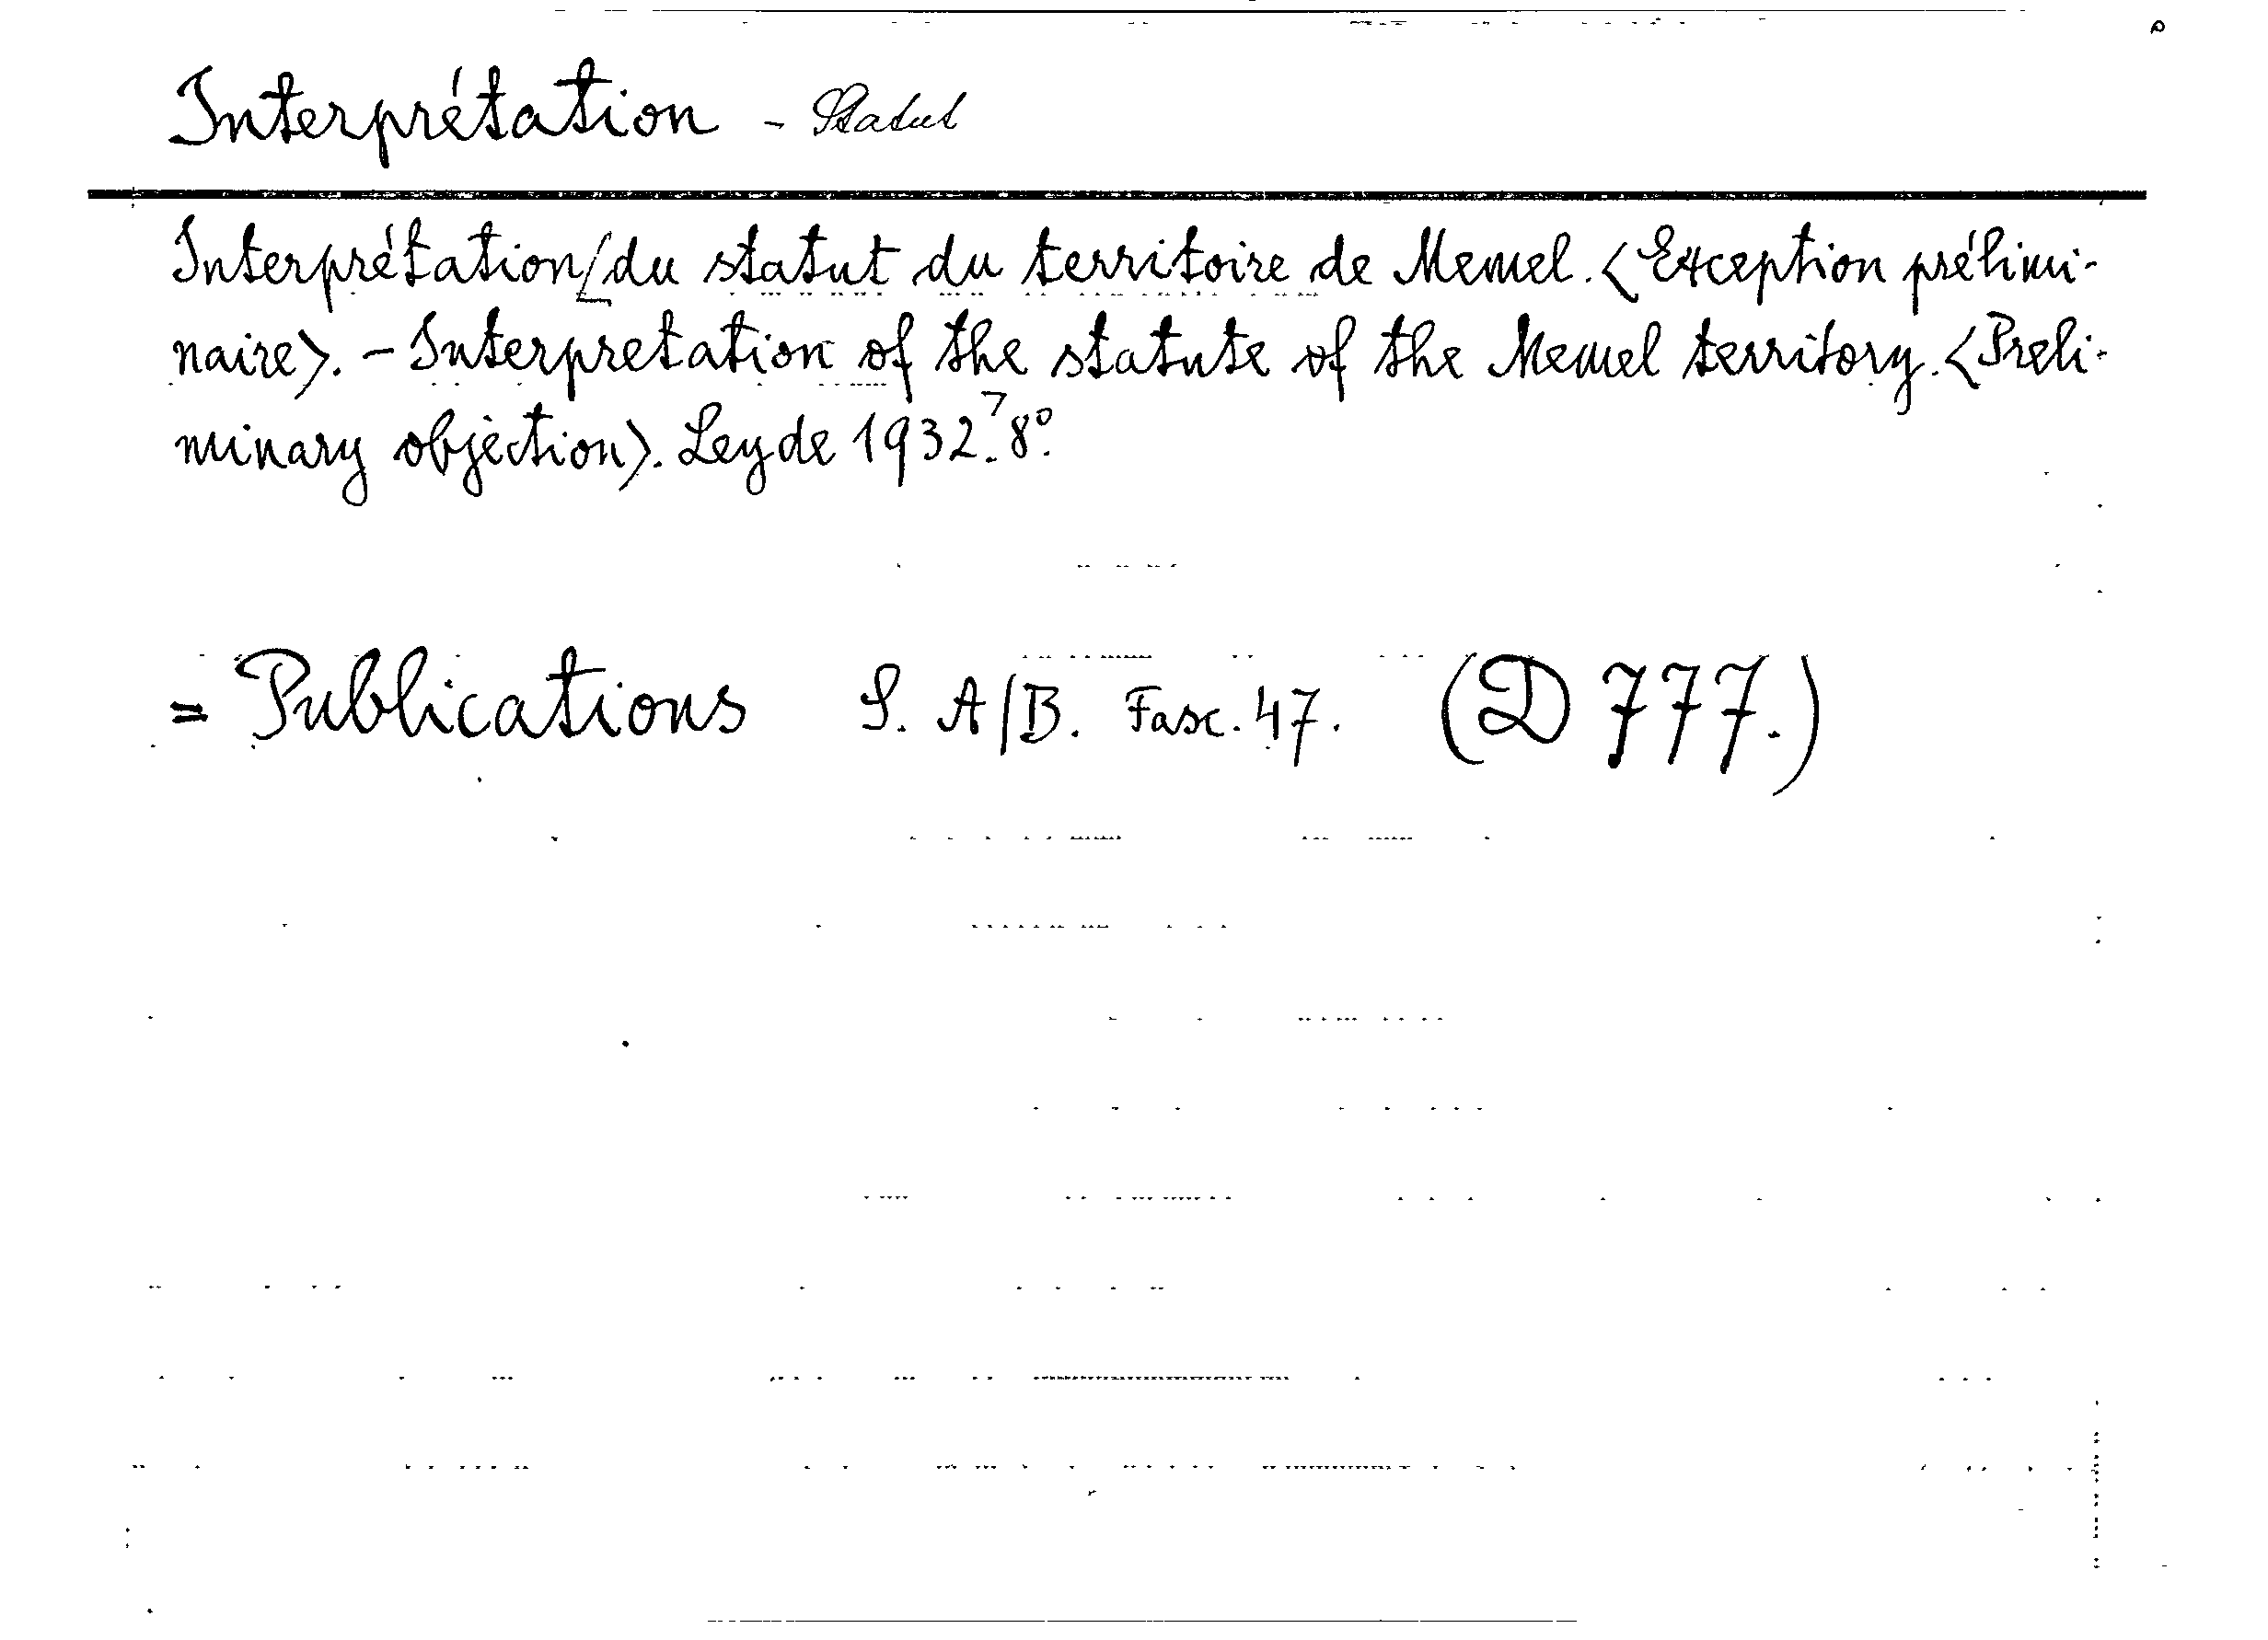 Interprétation - Statut
Interprétation [du statut du territoire de Memel. <Exception prélimi-
naire>. - Interpretation of the statute of the Memel territory. <Preli-
minary objection>. Leyde 1932. 8°.
= Publications S. A/B. Fasc. 47. (D 777.)